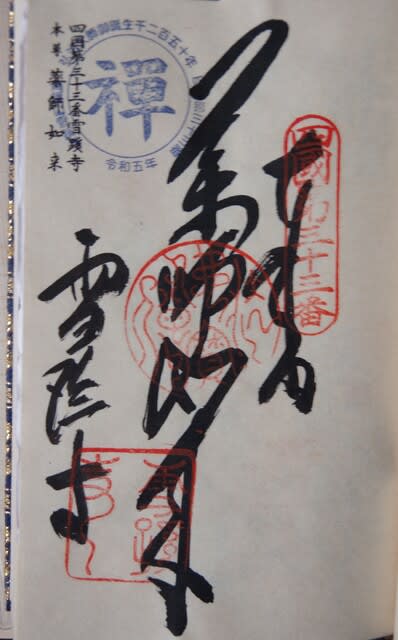 四國第三十三番
薬師如来
雪蹊寺
四國第三十三番雪蹊寺
本尊 薬師如来
御誕生千二百五十年
禪
令和五年